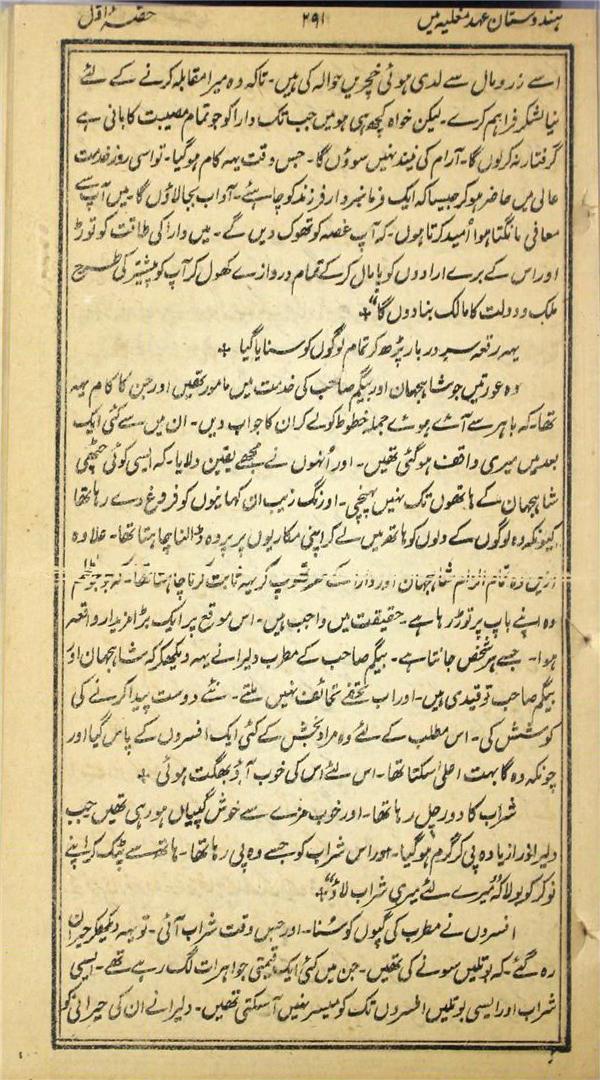 ہندوستان عہد مغلیہ میں ۲۹۱ حصہ اول
اسے زر و مال سے لدی ہوئی خچریں حوالہ کی ہیں۔ تاکہ وہ میرا مقابلہ کرنے کے لئے
نیا لشکر فراہم کرے۔ لیکن خواہ کچھ ہی ہو میں جب تک دارا کو جو تمام مصیبت کا بانی ہے
گرفتار نہ کر لوں گا۔ آرام کی نیند نہیں سوؤں گا۔ جس وقت یہہ کام ہو گیا۔ تو اسی روز خدمت
عالی میں حاضر ہو کر جیسا کہ ایک فرمانبردار فرزند کو چاہئے۔ آداب بجا لاؤں گا۔ میں آپ سے
معافی مانگتا ہوا اُمید کرتا ہوں۔ کہ آپ غصہ کو تھوک دیں گے۔ میں دارا کی طاقت کو توڑ
اور اس کے برے ارادوں کو پامال کر کے تمام دروازے کھول کر آپ کو پیشتر کی طرح
ملک و دولت کا مالک بنا دوں گا“+
یہہ رقعہ سرِ دربار پڑھ کر تمام لوگوں کو سنایا گیا +
وہ عورتیں جو شاہجہان اور بیگم صاحب کی خدمت میں مامور تھیں اور جن کا کام یہہ
تھا۔ کہ باہر سے آئے ہوئے جملہ خطوط کو لے کر ان کا جواب دیں۔ ان میں سے کئی ایک
بعد میں میری واقف ہو گئی تھیں۔ اور اُنہوں نے مجھے یقین دلایا۔ کہ ایسی کوئی چٹھی
شاہجہان کے ہاتھوں تک نہیں پہنچی۔ اورنگ زیب ان کہانیوں کو فروغ دے رہا تھا
کیونکہ وہ لوگوں کے دلوں کو ہاتھ میں لے کر اپنی مکاریوں پر پردہ ڈالنا چاہتا تھا۔ علاوہ
ازیں وہ تمام الزام شاہجہان اور دارا کے سر تھوپ کر یہہ ثابت کرنا چاہتا تھا۔ کہ جو ظلم
وہ اپنے باپ پر توڑ رہا ہے۔ حقیقت میں واجب ہیں۔ اس موقع پر ایک بڑا مزیدار واقعہ
ہوا۔ جسے ہر شخص جانتا ہے۔ بیگم صاحب کے مطرب دلیرا نے یہہ دیکھ کر کہ شاہجہان اور
بیگم صاحب تو قیدی ہیں۔ اور اب تحفے تحائف نہیں ملتے۔ نئے دوست پیدا کرنے کی
کوشش کی۔ اس مطلب کے لئے وہ مراد بخش کے کئی ایک افسروں کے پاس گیا اور
چونکہ وہ گا بہت اعلیٰ سکتا تھا۔ اس لئے اس کی خوب آؤ بھگت ہوئی +
شراب کا دور چل رہا تھا۔ اور خوب مزے سے خوش گپیاں ہو رہی تھیں جب
دلیرا ذرا زیادہ پی کر گرم ہو گیا۔ اور اس شراب کو جسے وہ پی رہا تھا۔ ہاتھ سے پٹک کر اپنے
نوکر کو بولا کہ ”میرے لئے میری شراب لاؤ“+
افسروں نے مطرب کی گپوں کو سُنا۔ اور جس وقت شراب آئی۔ تو یہہ دیکھ کر حیران
رہ گئے۔ کہ بوتلیں سونے کی تھیں۔ جن میں کئی ایک قیمتی جواہرات لگ رہے تھے۔ ایسی
شراب اور ایسی بوتلیں افسروں تک کو میسر نہیں آ سکتی تھیں۔ دلیرا نے ان کی حیرانی کو